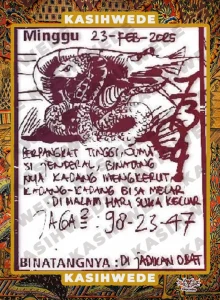 KASIHWEDE
Minggu 23-FEB-2025
BERPANGKAT TINGGI, CUMA
SI JENDERAL, BINATANG
NYA KADANG MENGKERUT
KADANG-KADANG BISA MELAR
DI MALAM HARI SUKA KELUAR
JAGA2: 98-23-47
BINATANGNYA: DI JADIKAN OBAT
KASIHWEDE